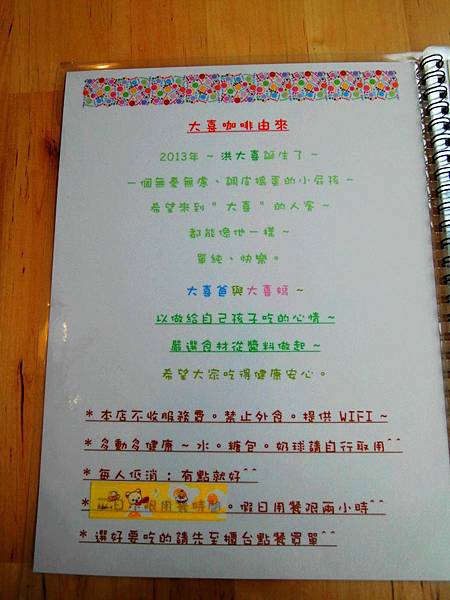 大喜咖啡由來
2013年 ~ 洪大喜誕生了 ~
一個無憂無慮、調皮搗蛋的小屁孩 ~
希望來到 " 大喜 " 的人客 ~
都能像他一樣 ~
單純、快樂。
大喜爸與大喜媽 ~
以做給自己孩子吃的心情 ~
嚴選食材從醬料做起 ~
希望大家吃得健康安心。
* 本店不收服務費。禁止外食。提供 WIFI ~
* 多動多健康 ~ 水。糖包。奶球請自行取用^^
* 每人低消 ; 有點就好^^
* 限用餐時間。假日用餐限兩小時^^
* 選好要吃的請先至櫃台點餐買單^^